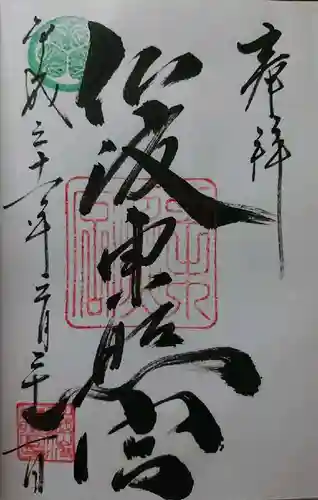 奉拝
仙波東照宮
平成三十一年三月三十一日